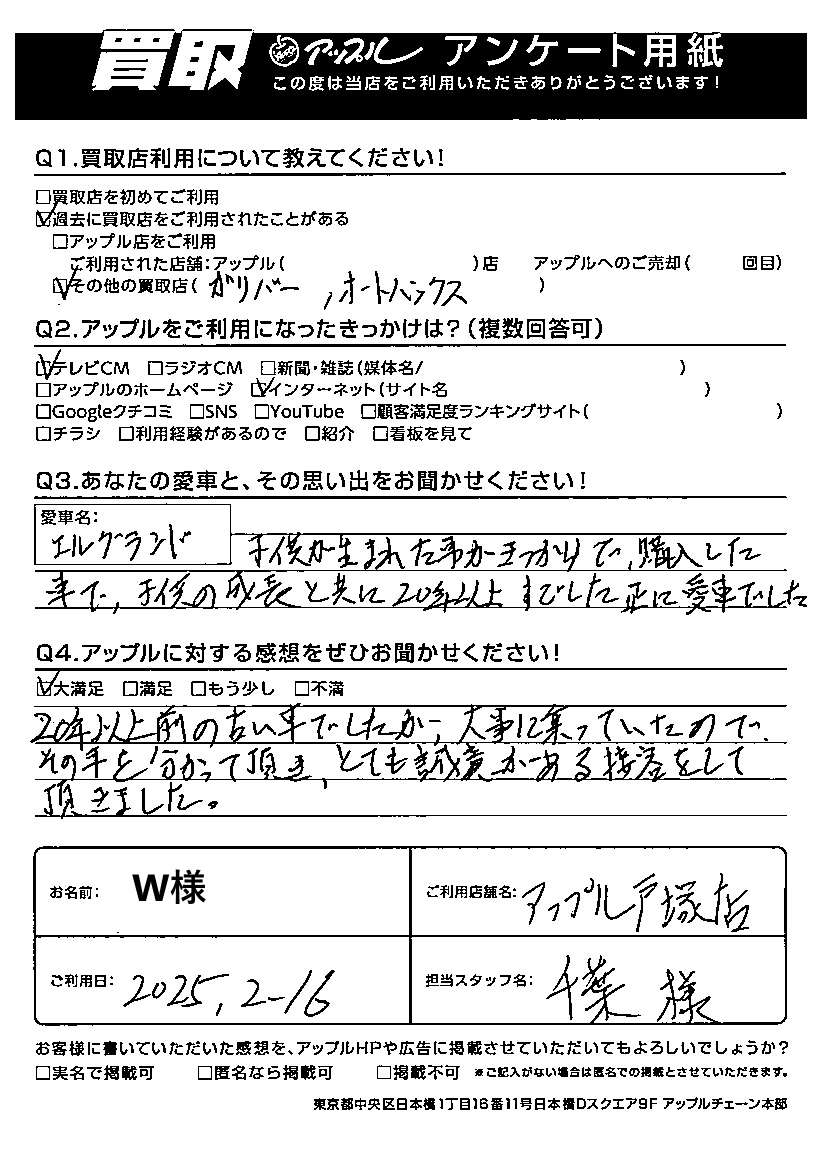 買取 アップル アンケート用紙
この度は当店をご利用いただきありがとうございます!
Q1.買取店利用について教えてください!
□買取店を初めてご利用
☑過去に買取店をご利用されたことがある
□アップル店をご利用
ご利用された店舗:アップル( )店 アップルへのご売却( 回目)
☑その他の買取店( ガリバー , オートバックス )
Q2.アップルをご利用になったきっかけは?(複数回答可)
☑テレビCM □ラジオCM □新聞・雑誌(媒体名/ )
□アップルのホームページ ☑インターネット(サイト名 )
□Googleクチコミ □SNS □YouTube □顧客満足度ランキングサイト( )
□チラシ □利用経験があるので □紹介 □看板を見て
Q3.あなたの愛車と、その思い出をお聞かせください!
愛車名:
エルグランド 子供が生まれた事がきっかけで、購入した
車で、子供の成長と共に20年以上すごした正に愛車でした
Q4.アップルに対する感想をぜひお聞かせください!
☑大満足 □満足 □もう少し □不満
20年以上前の古い車でしたが、大事に乗っていたので、
その事を分かって頂き、とても誠意がある接客をして
頂きました。
お名前: W様 ご利用店舗名: アップル戸塚店
ご利用日: 2025,2-16 担当スタッフ名: 千葉 様
お客様に書いていただいた感想を、アップルHPや広告に掲載させていただいてもよろしいでしょうか?
□実名で掲載可 □匿名なら掲載可 □掲載不可 ※ご記入がない場合は匿名での掲載とさせていただきます。
東京都中央区日本橋1丁目16番11号日本橋Dスクエア9F アップルチェーン本部